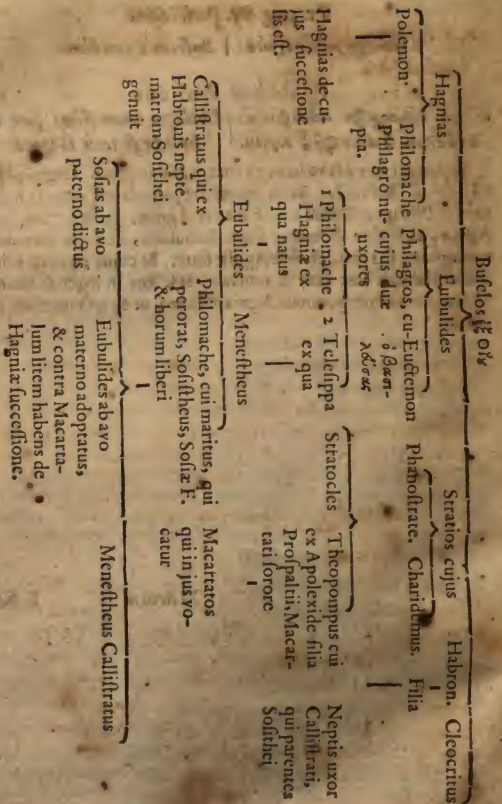 Buselos ἐξ οἵυ
Hagnias
Eubulides
Stratios cujus
Habron.
Cleocritus
Polemon.
Philomache
Philagro nu-
pta.
Philagros, cu-
cujus duæ
uxores
Euctemon
ὁ βασι-
λεύσας
Phanostrate.
Charidemus.
Filia
Hagnias de cu-
jus successione
lis est.
1 Philomache
Hagniæ ex
qua natus
2 Telesippa
ex qua
Stratocles
Theopompus cui
ex Apolexide filia
Prospaltii, Macar-
tati sorore
Neptis uxor
Callistrati,
qui parentes
Sosithei
Eubulides
Menestheus
Callistratus qui ex
Habronis nepte
matrem Sosithei
genuit
Philomache, cui maritus, qui
perorat, Sosistheus, Sosiæ F.
& horum liberi
Macartatos
qui in jus vo-
catur
Sosias ab avo
paterno dictus
Eubulides ab avo
materno adoptatus,
& contra Macarta-
tum litem habens de
Hagniæ successione.
Menestheus
Callistratus